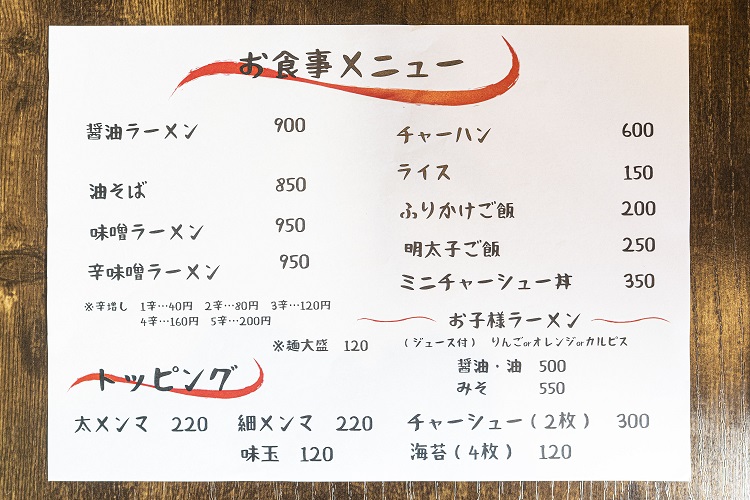 お食事メニュー
醤油ラーメン 900
油そば 850
味噌ラーメン 950
辛味噌ラーメン 950
※辛増し 1辛…40円 2辛…80円 3辛…120円
4辛…160円 5辛…200円
※麺大盛 120
チャーハン 600
ライス 150
ふりかけご飯 200
明太子ご飯 250
ミニチャーシュー丼 350
お子様ラーメン
(ジュース付) りんごorオレンジorカルピス
醤油・油 500
みそ 550
トッピング
太メンマ 220 細メンマ 220 チャーシュー(2枚) 300
味玉 120 海苔(4枚) 120